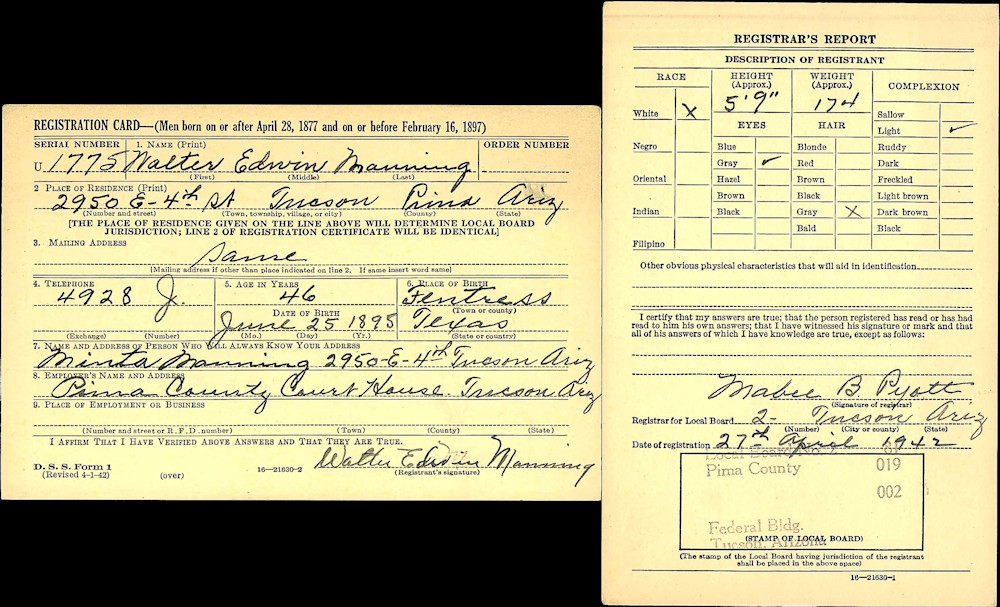 REGISTRATION CARD—(Men born on or after April 28, 1877 and on or before February 16, 1897)
SERIAL NUMBER 1. NAME (Print) ORDER NUMBER
U 1775 Walter Edwin Manning
(First) (Middle) (Last)
2 PLACE OF RESIDENCE (Print)
2950 E-4th St Tucson Pima Ariz
(Number and street) (Town, township, village, or city) (County) (State)
[THE PLACE OF RESIDENCE GIVEN ON THE LINE ABOVE WILL DETERMINE LOCAL BOARD
JURISDICTION; LINE 2 OF REGISTRATION CERTIFICATE WILL BE IDENTICAL]
3. MAILING ADDRESS
Same
[Mailing address if other than place indicated on line 2. If same insert word same]
4. TELEPHONE 5. AGE IN YEARS 6. PLACE OF BIRTH
4928 J. 46 Fentress
(Town or county)
DATE OF BIRTH
June 25 1895 Texas
(Exchange) (Number) (Mo.) (Day) (Yr.) (State or country)
7. NAME AND ADDRESS OF PERSON WHO WILL ALWAYS KNOW YOUR ADDRESS
Minta Manning 2950-E-4th Tucson Ariz
8. EMPLOYER'S NAME AND ADDRESS
Pima County Court House Tucson Ariz
9. PLACE OF EMPLOYMENT OR BUSINESS
(Number and street or R.F.D. number) (Town) (County) (State)
I AFFIRM THAT I HAVE VERIFIED ABOVE ANSWERS AND THAT THEY ARE TRUE.
Walter Edwin Manning
D. S. S. Form 1 16—21630-2 (Registrant's signature)
(Revised 4-1-42) (over)
REGISTRAR'S REPORT
DESCRIPTION OF REGISTRANT
RACE HEIGHT (Approx.) WEIGHT (Approx.) COMPLEXION
5'9" 174
White X Sallow
EYES HAIR Light ✓
Negro Blue Blonde Ruddy
Gray ✓ Red Dark
Oriental Hazel Brown Freckled
Brown Black Light brown
Indian Black Gray X Dark brown
Bald Black
Filipino
Other obvious physical characteristics that will aid in identification
I certify that my answers are true; that the person registered has read or has had
read to him his own answers; that I have witnessed his signature or mark and that
all of his answers of which I have knowledge are true, except as follows:
Mabee B. Pyott
(Signature of registrar)
Registrar for Local Board 2- Tucson Ariz
(Number) (City or county) (State)
Date of registration 27th April 1942
Local Board No.
Pima County 019
002
Federal Bldg.
(STAMP OF LOCAL BOARD)
Tucson, Arizona
(The stamp of the Local Board having jurisdiction of the registrant
shall be placed in the above space)
16—21630-1